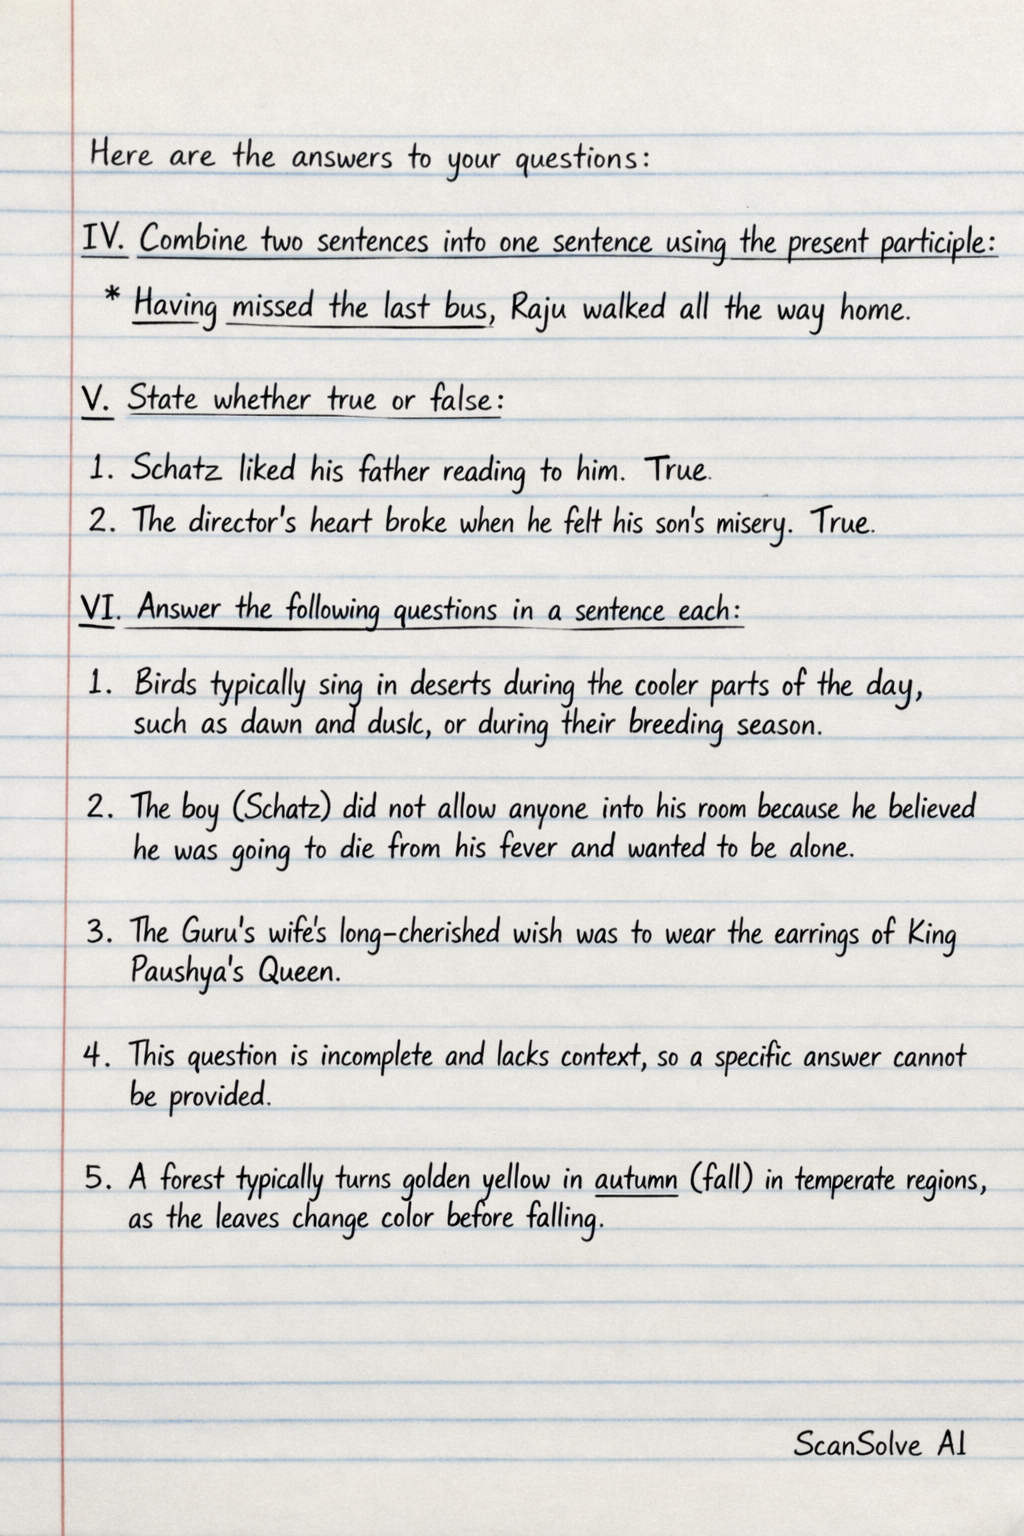 Here are the answers to your questions:
IV. Combine two sentences into one sentence using the present participle:
* Having missed the last bus, Raju walked all the way home.
V. State whether true or false:
1. Schatz liked his father reading to him. True.
2. The director's heart broke when he felt his son's misery. True.
VI. Answer the following questions in a sentence each:
1. Birds typically sing in deserts during the cooler parts of the day,
such as dawn and dusk, or during their breeding season.
2. The boy (Schatz) did not allow anyone into his room because he believed
he was going to die from his fever and wanted to be alone.
3. The Guru's wife's long-cherished wish was to wear the earrings of King
Paushya's Queen.
4. This question is incomplete and lacks context, so a specific answer cannot
be provided.
5. A forest typically turns golden yellow in autumn (fall) in temperate regions,
as the leaves change color before falling.
ScanSolve AI